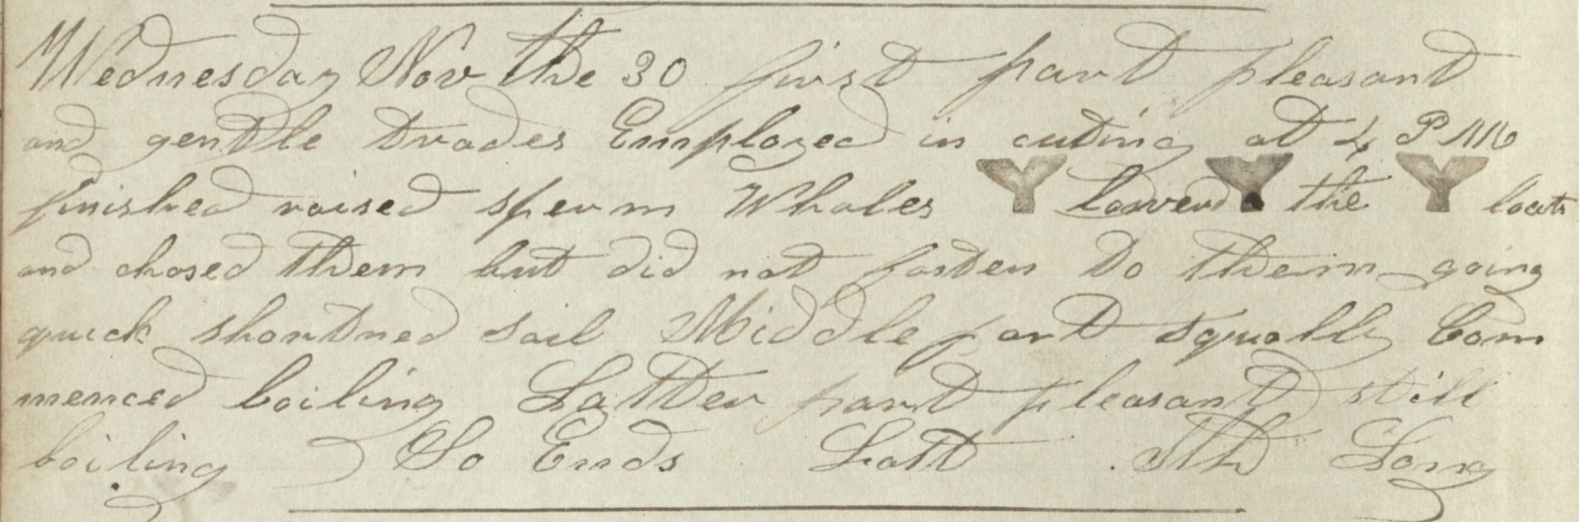 Wednesday Nov the 30 first part pleasant
and gentle trades Employed in cuting at 4 PM
finished raised sperm Whales lowerd the boats
and chased them but did not fasten to them going
quick shortned sail Middle part squally Com
menced boiling Latter part pleasant still
boiling So Ends Latt Long